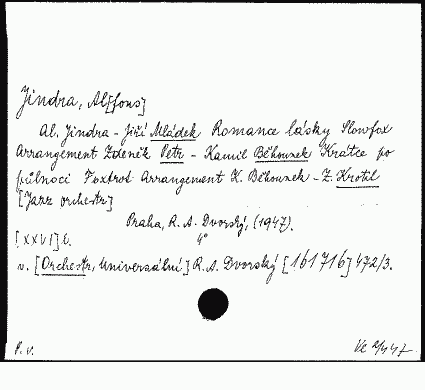 Jindra, Al[fons]
Al. Jindra - Jiří Mládek Romance lásky Slowfox
Arrangement Zdeněk Petr - Kamil Běhounek Krátce po
půlnoci Foxtrot Arrangement K. Běhounek - Z. Krotil
[Jazz orchestr]
Praha, R. A. Dvorský, (1947).
[XXVI] l. 4°
v. [Orchestr, Universální] R. A. Dvorský [161716] 472/3.
P. V.